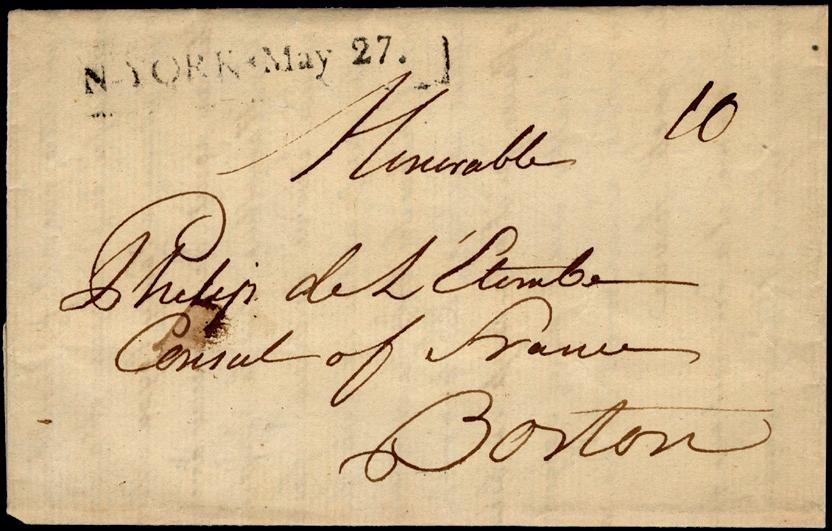 N-YORK•May 27.
Honorable 10
Philip de L'Etombe
Consul of France
Boston